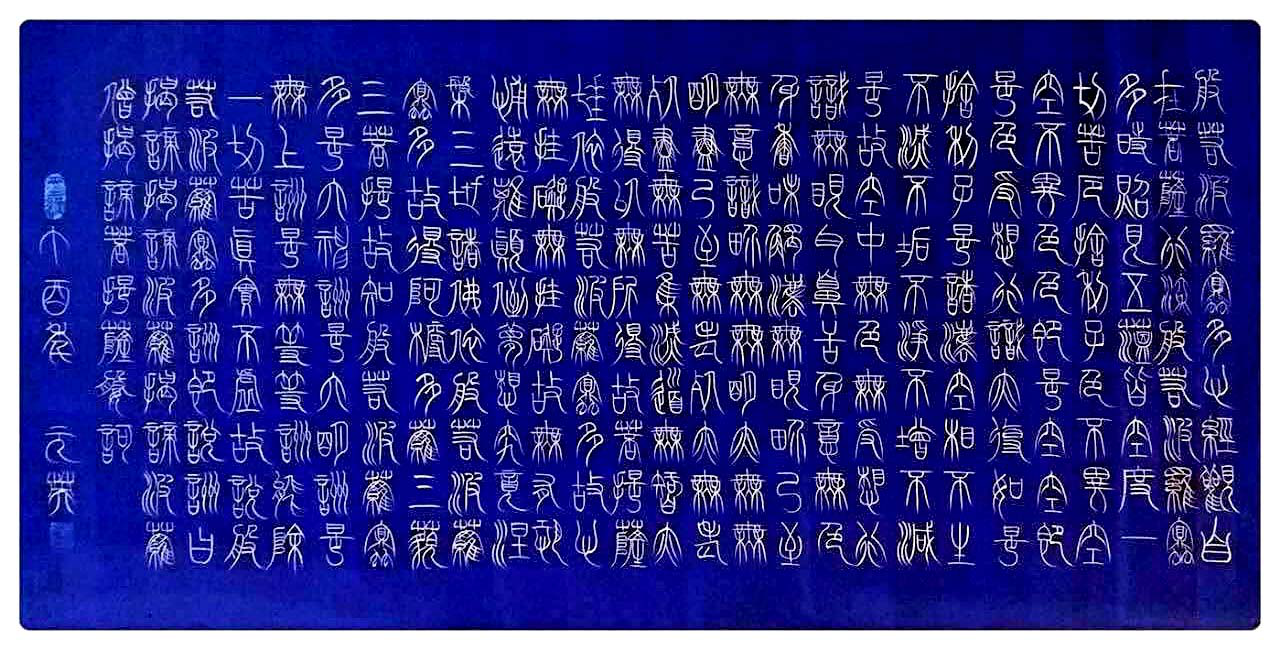 般若波羅蜜多心經觀自
在菩薩行深般若波羅蜜
多時照見五蘊皆空度一
切苦厄捨利子色不異空
空不異色色即是空空即
是色受想行識亦復如是
捨利子是諸法空相不生
不滅不垢不淨不增不減
是故空中無色無受想行
識無眼耳鼻舌身意無色
身香味觸法無眼界乃至
無意識界無無明亦無無
明盡乃至無老死亦無老
死盡無苦集滅道無智亦
無得以無所得故菩提薩
埵依般若波羅蜜多故心
無罣礙無罣礙故無有恐
怖遠離顛倒夢想究竟涅
槃三世諸佛依般若波羅
蜜多故得阿耨多羅三藐
三菩提故知般若波羅蜜
多是大神咒是大明咒是
無上咒是無等等咒能除
一切苦真實不虛故說般
若波羅蜜多咒即說咒曰
揭諦揭諦波羅揭諦波羅
僧揭諦菩提薩婆訶
丁酉年 元英